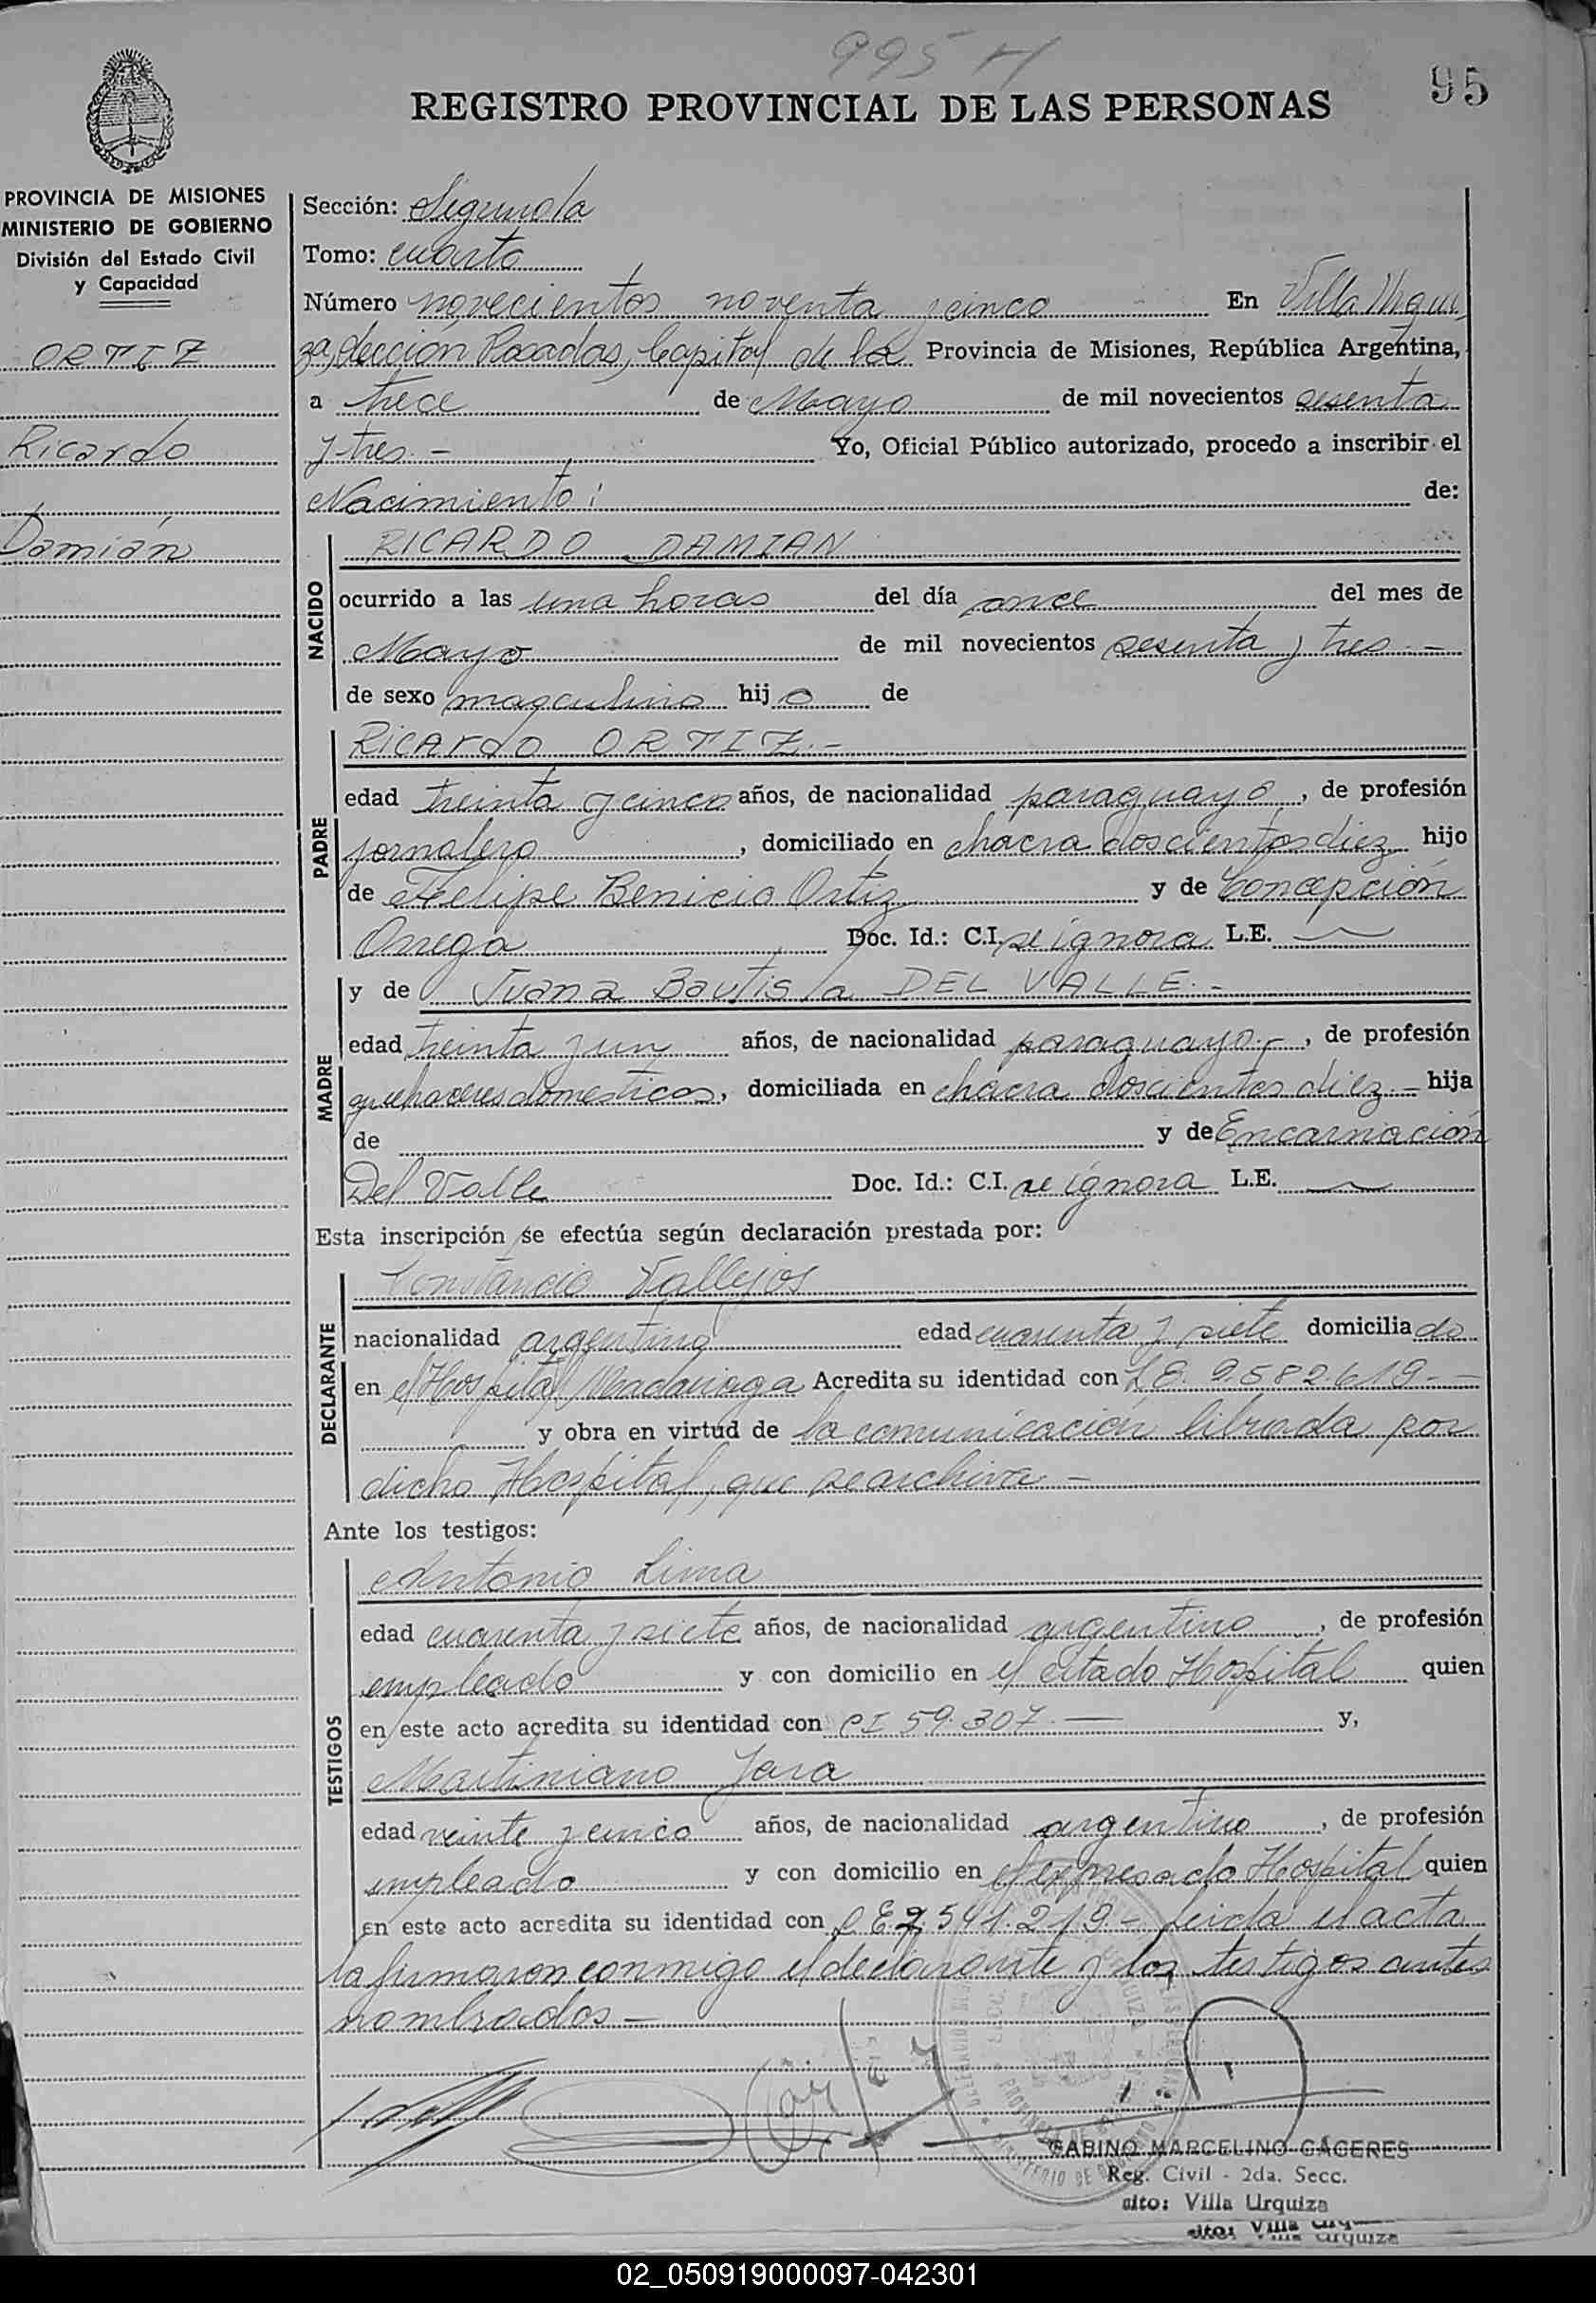 995 H
95
REGISTRO PROVINCIAL DE LAS PERSONAS
PROVINCIA DE MISIONES
MINISTERIO DE GOBIERNO
División del Estado Civil
y Capacidad
ORTIZ
Ricardo
Damián
Sección: Segunda
Tomo: cuarto
Número novecientos noventa y cinco En Villa Urqui
za, sección Posadas, Capital de la Provincia de Misiones, República Argentina,
a trece de Mayo de mil novecientos sesenta
y tres.- Yo, Oficial Público autorizado, procedo a inscribir el
Nacimiento: de:
NACIDO
RICARDO DAMIAN
ocurrido a las una horas del día once del mes de
Mayo de mil novecientos sesenta y tres.-
de sexo masculino hijo de
PADRE
Ricardo ORTIZ.-
edad treinta y cinco años, de nacionalidad paraguayo, de profesión
jornalero, domiciliado en chacra doscientos diez hijo
de Felipe Benicio Ortiz y de Concepción
Orrego Doc. Id.: C.I. se ignora L.E.
MADRE
y de Juana Bautista DEL VALLE.-
edad treinta y un años, de nacionalidad paraguaya.-, de profesión
quehaceres domesticos, domiciliada en chacra doscientos diez.- hija
de y de Encarnación
Del Valle Doc. Id.: C.I. se ignora L.E.
Esta inscripción se efectúa según declaración prestada por:
DECLARANTE
Constancio Vallejos
nacionalidad argentino edad cuarenta y siete domiciliado
en el Hospital Madariaga Acredita su identidad con L.E. 9.582.619.-
y obra en virtud de la comunicación librada por
dicho Hospital, que se archiva.-
Ante los testigos:
TESTIGOS
Antonio Lima
edad cuarenta y siete años, de nacionalidad argentino, de profesión
empleado y con domicilio en el citado Hospital quien
en este acto acredita su identidad con CI 59.307.- y,
Martiniano Jara
edad veinte y cinco años, de nacionalidad argentino, de profesión
empleado y con domicilio en el expresado Hospital quien
en este acto acredita su identidad con L.E. 7.541.219.- Leida el acta
la firmaron conmigo el declarante y los testigos antes
nombrados.-
GABINO MARCELINO CACERES
Reg. Civil - 2da. Secc.
sito: Villa Urquiza
sito: Villa Urquiza
02_050919000097-042301